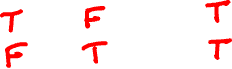 T F T
F T T